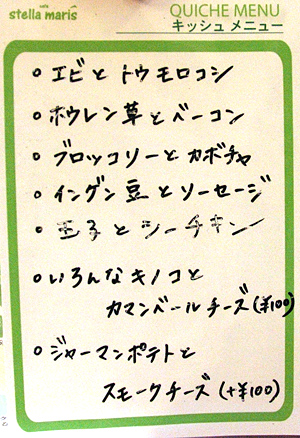 cafe
stella maris
QUICHE MENU
キッシュ メニュー
○ エビと トウモロコシ
○ ホウレン草とベーコン
○ ブロッコリーとカボチャ
○ インゲン豆とソーセージ
○ 玉子とツーチキン
○ いろんなキノコと
カマンベールチーズ (+¥100)
○ ジャーマンポテトと
スモークチーズ (+¥100)